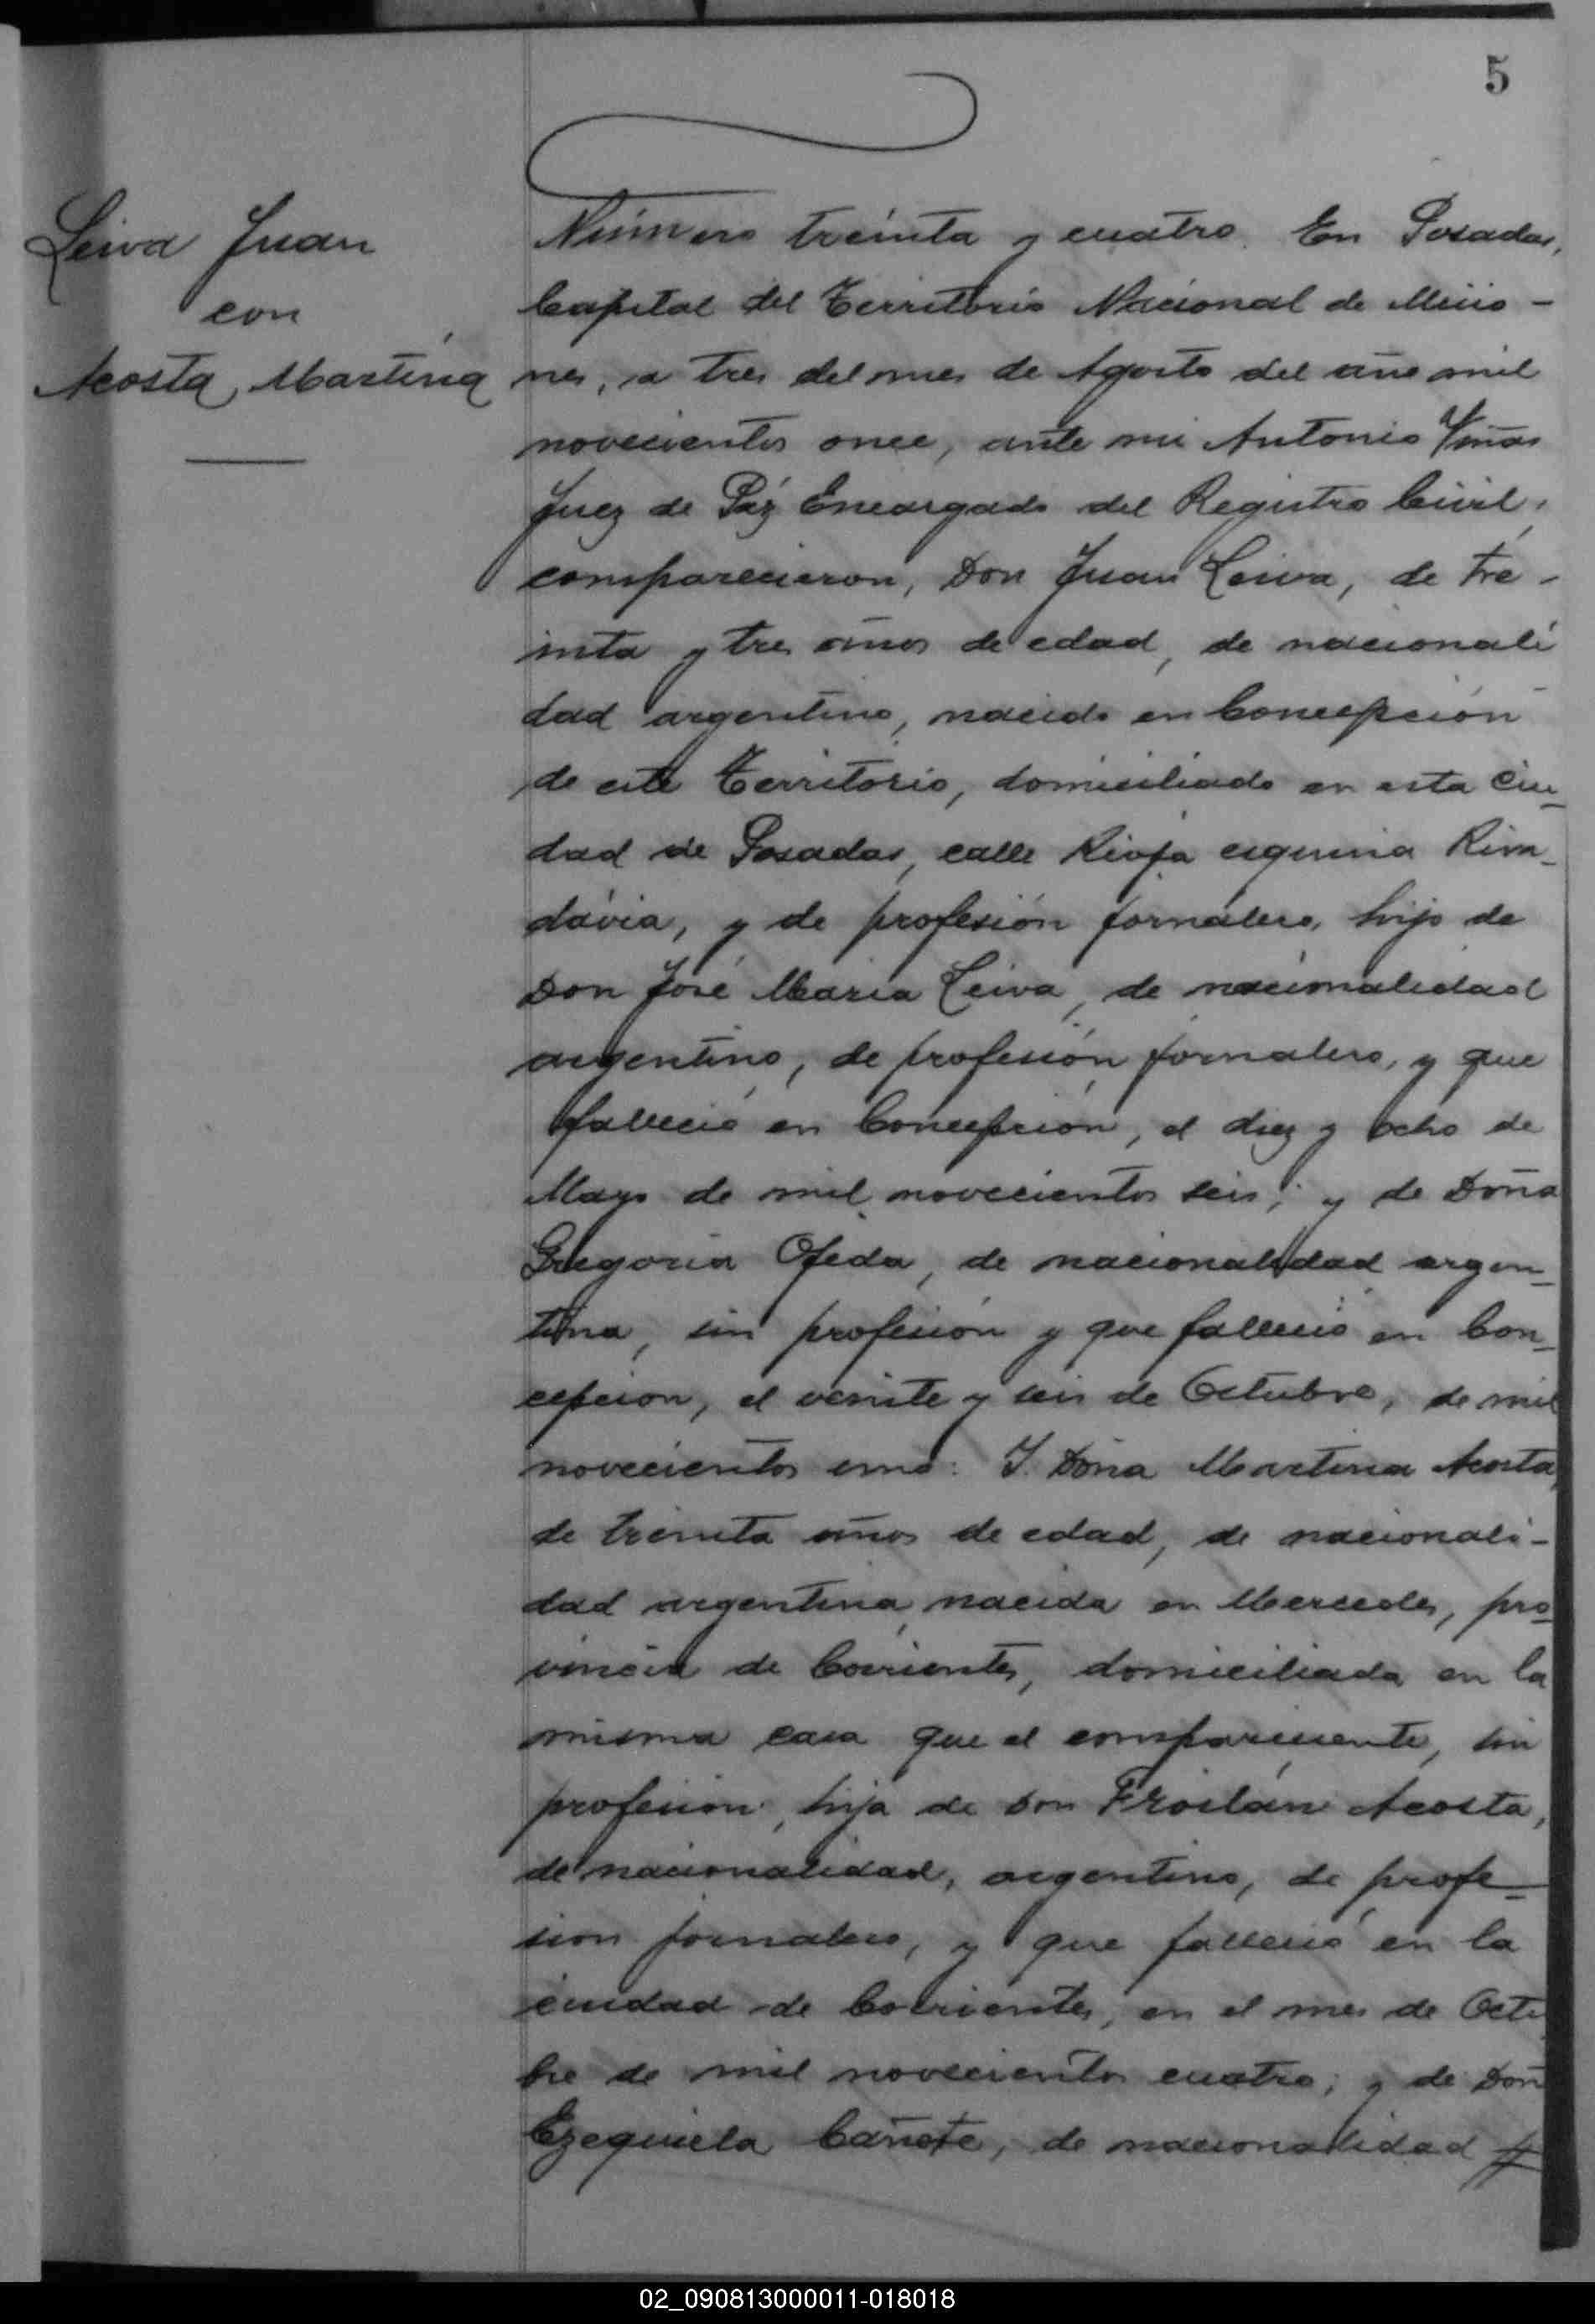 5
Leiva Juan
con
Acosta, Martina
Número treinta y cuatro. En Posadas,
Capital del Territorio Nacional de Misio-
nes, a tres del mes de Agosto del año mil
novecientos once, ante mi Antonio Viñas
Juez de Páz Encargado del Registro Civil,
comparecieron, Don Juan Leiva, de tre-
inta y tres años de edad, de nacionali
dad argentino, nacido en Concepción
de este Territorio, domiciliado en esta Ciu-
dad de Posadas, calle Rioja esquina Riva-
davia, y de profesión jornalero, hijo de
Don José Maria Leiva, de nacionalidad
argentino, de profesión jornalero, y que
falleció en Concepción, el diez y ocho de
Mayo de mil novecientos seis; y de Doña
Gregoria Ojeda, de nacionalidad argen-
tina, sin profesión y que falleció en Con-
cepcion, el veinte y seis de Octubre, de mil
novecientos uno: Y. Doña Martina Acosta,
de treinta años de edad, de nacionali-
dad argentina, nacida en Mercedes, pro-
vincia de Corrientes, domiciliada en la
misma casa que el compareciente, sin
profesion, hija de Don FRoilán Acosta,
de nacionalidad, argentino, de profe-
sion jornalero, y que falleció en la
ciudad de Corrientes, en el mes de Octu
bre de mil novecientos cuatro; y de Doñ
Ezequiela Cañete, de nacionalidad #
02_090813000011-018018